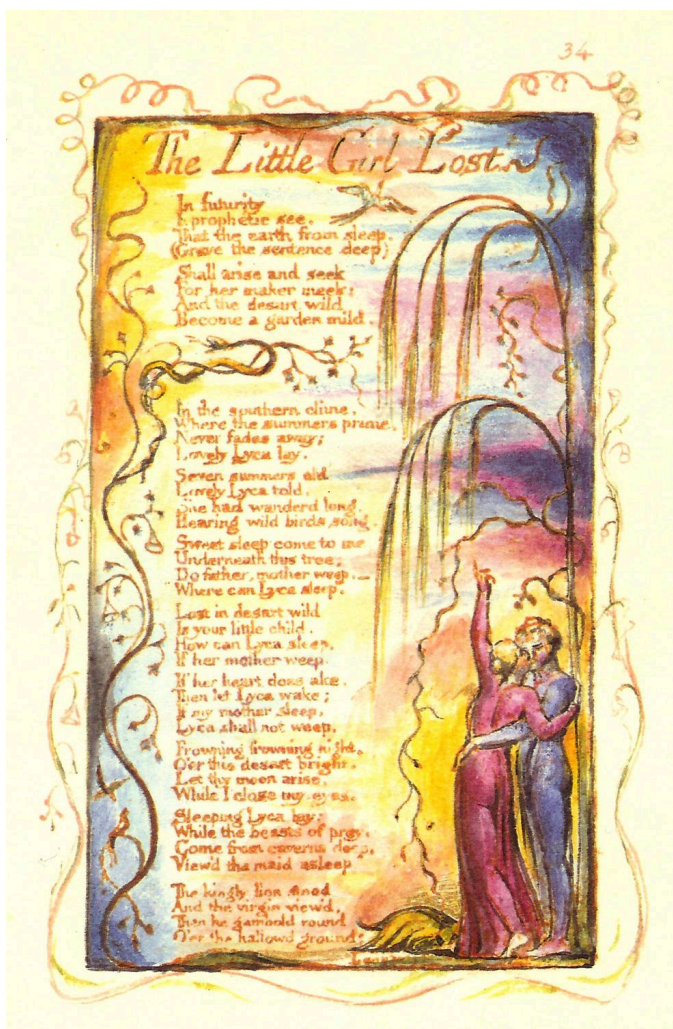 34
The Little Girl Lost
In futurity
I prophetic see.
That the earth from sleep.
(Grave the sentence deep)
Shall arise and seek
For her maker meek:
And the desart wild
Become a garden mild.
In the southern clime,
Where the summers prime,
Never fades away;
Lovely Lyca lay.
Seven summers old
Lovely Lyca told,
She had wanderd long,
Hearing wild birds song.
Sweet sleep come to me
Underneath this tree;
Do father, mother weep.—
Where can Lyca sleep.
Lost in desart wild
Is your little child.
How can Lyca sleep,
If her mother weep.
If her heart does ake,
Then let Lyca wake;
If my mother sleep,
Lyca shall not weep.
Frowning frowning night,
O'er this desart bright,
Let thy moon arise,
While I close my eyes.
Sleeping Lyca lay:
While the beasts of prey,
Come from caverns deep,
View'd the maid asleep
The kingly lion stood
And the virgin view'd,
Then he gambold round
O'er the hallowd ground: